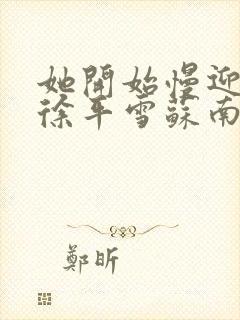 她開始慢迎
徐平雪蘇南
鄭昕